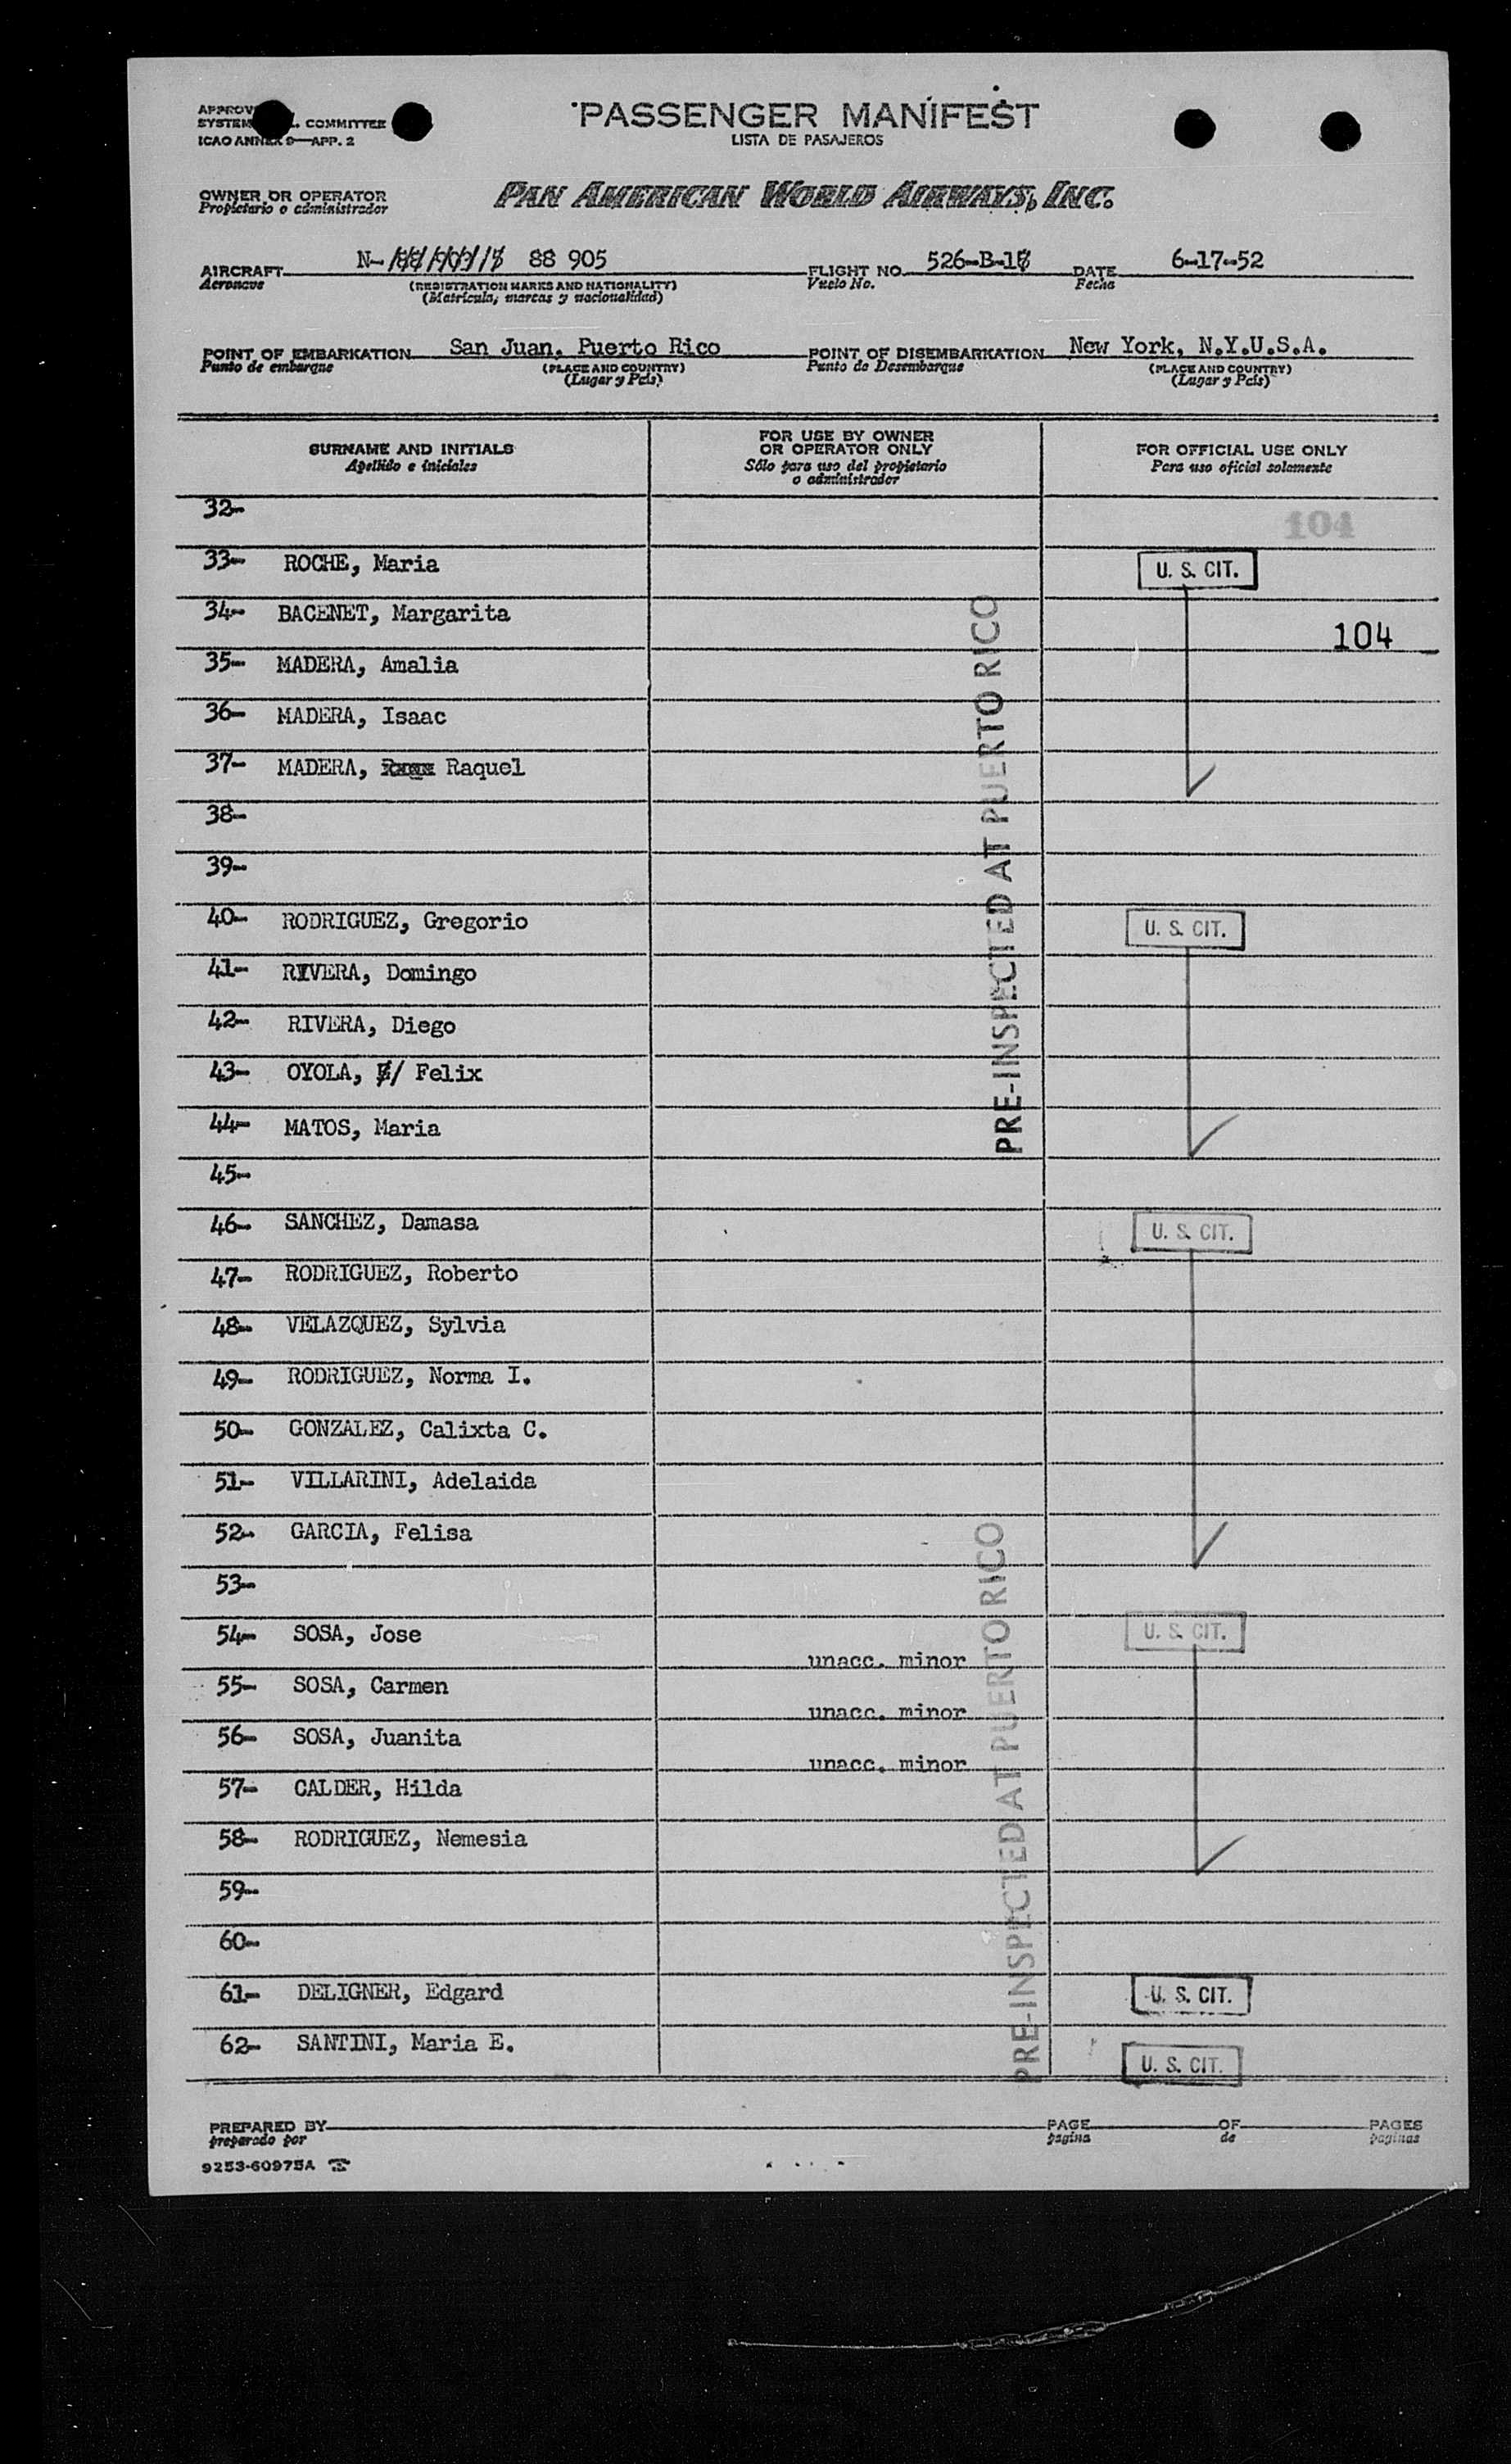 APPROV
SYSTEM . COMMITTEE
ICAO ANNEX 9—APP. 2
PASSENGER MANIFEST
LISTA DE PASAJEROS
OWNER OR OPERATOR
Propietario o administrador
PAN AMERICAN WORLD AIRWAYS, INC.
AIRCRAFT N- 88 905 FLIGHT NO. 526-B-1 DATE 6-17-52
Aeronave (REGISTRATION MARKS AND NATIONALITY) Vuelo No. Fecha
(Matrícula, marcas y nacionalidad)
POINT OF EMBARKATION San Juan, Puerto Rico POINT OF DISEMBARKATION New York, N.Y.U.S.A.
Punto de embarque (PLACE AND COUNTRY) Punto de Desembarque (PLACE AND COUNTRY)
(Lugar y País) (Lugar y País)
SURNAME AND INITIALS
Apellido e iniciales
FOR USE BY OWNER
OR OPERATOR ONLY
Sólo para uso del propietario
o administrador
FOR OFFICIAL USE ONLY
Para uso oficial solamente
32-
104
33- ROCHE, Maria U. S. CIT.
34- BACENET, Margarita 104
35- MADERA, Amalia
36- MADERA, Isaac
37- MADERA, Raquel
38-
39-
40- RODRIGUEZ, Gregorio U. S. CIT.
41- RIVERA, Domingo
42- RIVERA, Diego
43- OYOLA, Felix
44- MATOS, Maria
PRE-INSPECTED AT PUERTO RICO
45-
46- SANCHEZ, Damasa U. S. CIT.
47- RODRIGUEZ, Roberto
48- VELAZQUEZ, Sylvia
49- RODRIGUEZ, Norma I.
50- GONZALEZ, Calixta C.
51- VILLARINI, Adelaida
52- GARCIA, Felisa
53-
54- SOSA, Jose unacc. minor U. S. CIT.
55- SOSA, Carmen unacc. minor
56- SOSA, Juanita unacc. minor
57- CALDER, Hilda
58- RODRIGUEZ, Nemesia
59-
60-
61- DELIGNER, Edgard U. S. CIT.
62- SANTINI, Maria E. U. S. CIT.
PRE-INSPECTED AT PUERTO RICO
PREPARED BY PAGE OF PAGES
preparado por página de páginas
9253-60975A